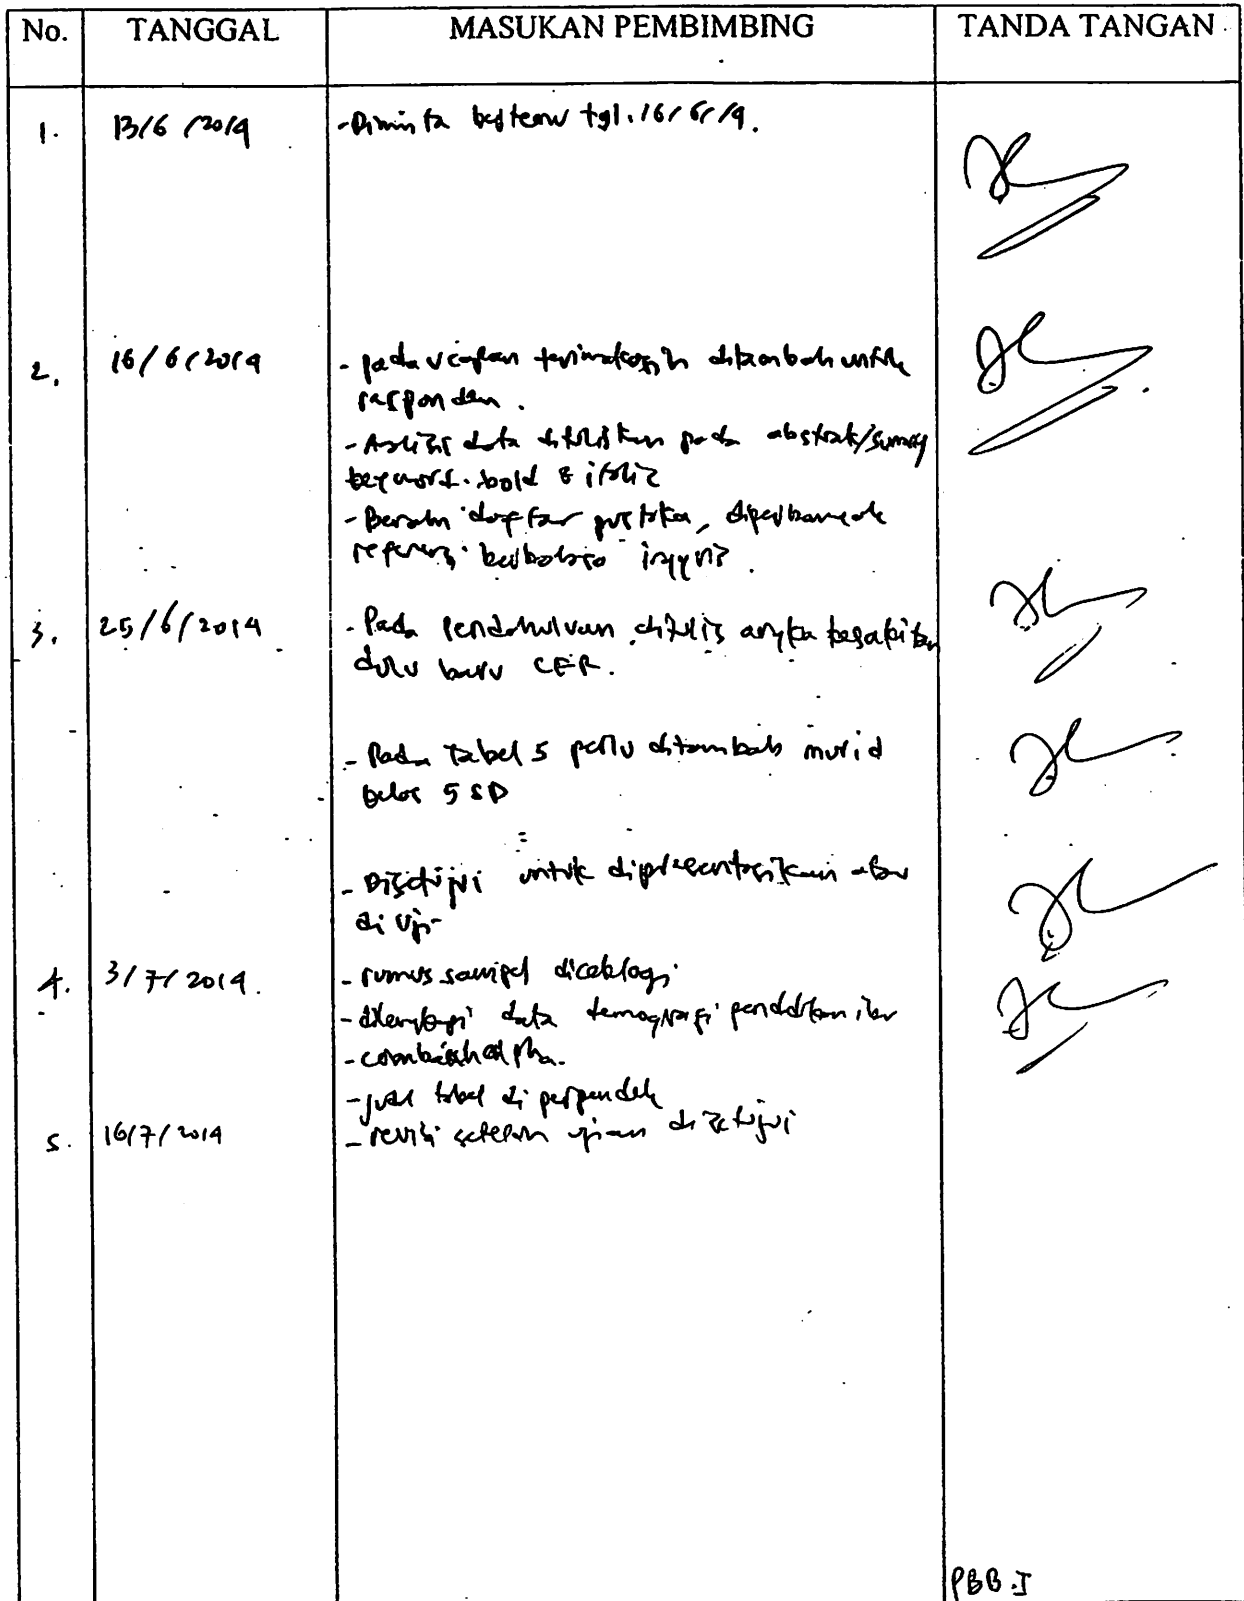 No. TANGGAL MASUKAN PEMBIMBING TANDA TANGAN
1. 13/6/2014 - Diminta bertemu tgl. 16/6/14.
2. 16/6/2014 - pada ucapan terimakasih ditambah untuk
responden.
- Analisis data dituliskan pada abstrak/
keyword. bold &
- daftar pustaka, diperbanyak
referensi berbahasa inggris.
3. 25/6/2014 - Pada pendahuluan ditulis angka kesakitan
dulu baru CFR.
- Pada Tabel 5 perlu ditambah murid
kelas 5 SD
- Disetujui untuk dipresentasikan atau
di uji
4. 3/7/2014. - rumus sampel
- dilengkapi data demografi pendidikan ibu
-
- judul tabel di perpendek
5. 16/7/2014 - revisi setelah ujian disetujui
PBB.I